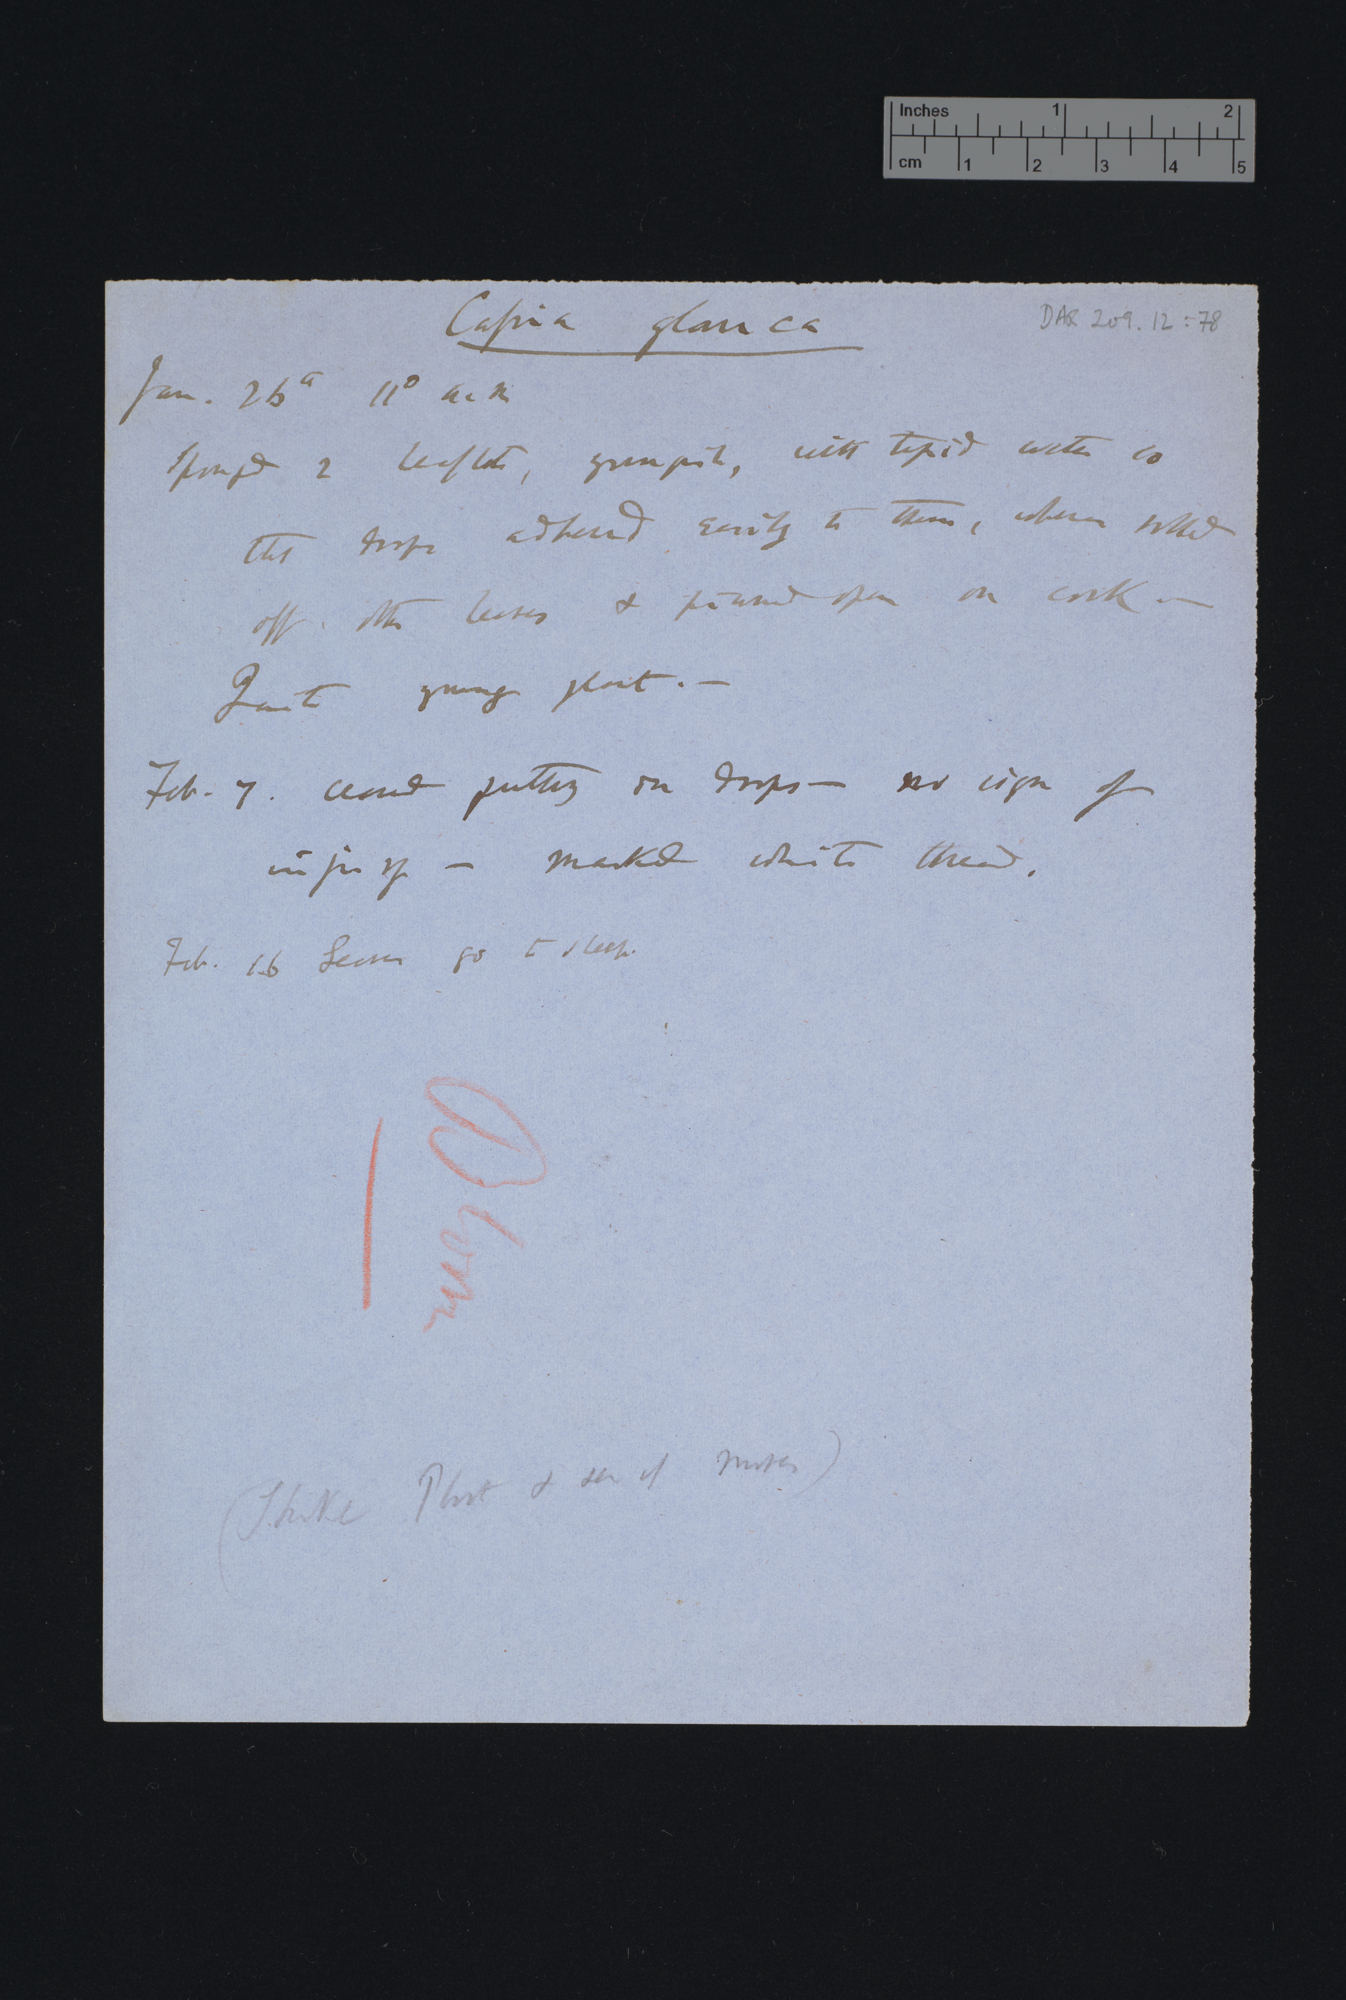 DAR 209.12:78
Cassia glauca
Jan. 26th 11° a.m
Sponged 2 leaflets, youngish, with tepid water so
that drops adhered easily to them, when rolled
off other leaves & pinned open on cork —
Quite young plant. —
Feb. 7. ceased putting on drops — no sign of
injury — marked white thread.
Feb. 16 Leaves go to sleep.
Bloom
(Shake Plant & see if moves)
Inches 1 2
cm 1 2 3 4 5